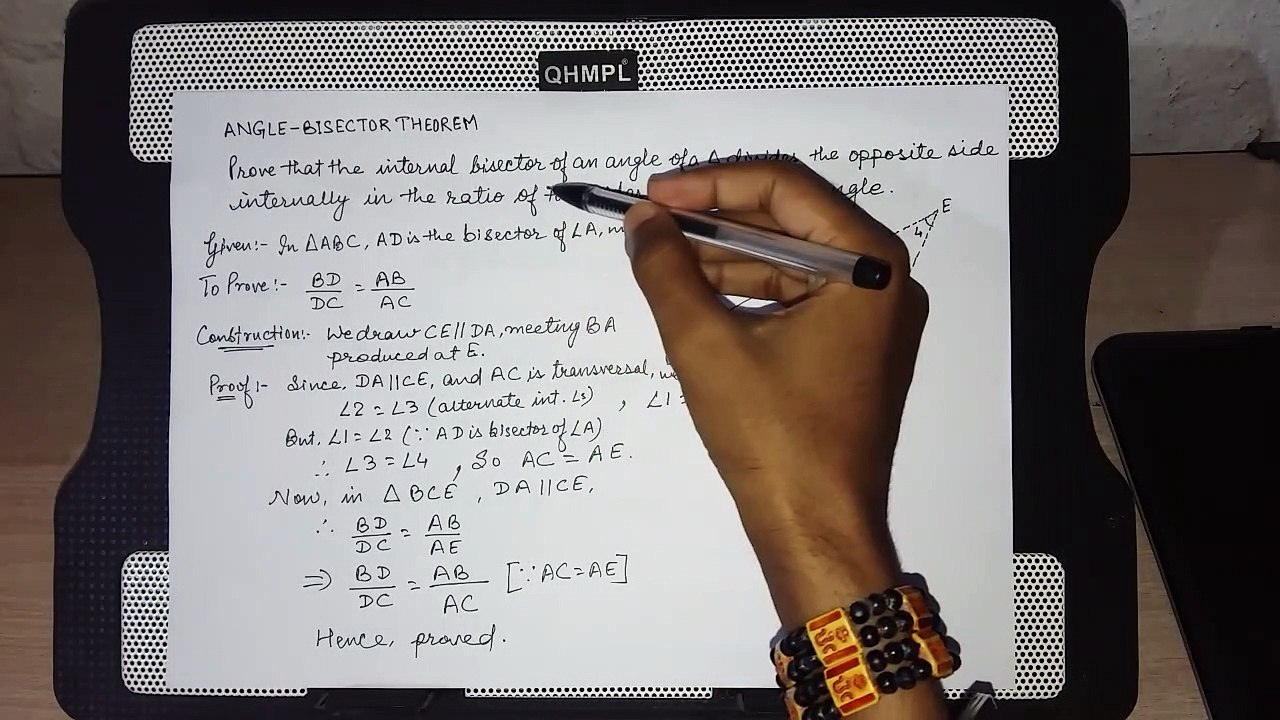 QHMPL
ANGLE-BISECTOR THEOREM
Prove that the internal bisector of an angle of a Δ divides the opposite side
internally in the ratio of
Given:- In ΔABC, AD is the bisector of ∠A,
E
4
To Prove:- BD/DC = AB/AC
Construction:- We draw CE || DA, meeting BA
produced at E.
Proof:- Since, DA||CE, and AC is transversal,
∠2 = ∠3 (alternate int. ∠s) , ∠1 =
But, ∠1 = ∠2 (∵ AD is bisector of ∠A)
∴ ∠3 = ∠4 , So AC = AE.
Now, in Δ BCE , DA || CE,
∴ BD/DC = AB/AE
⇒ BD/DC = AB/AC [∵ AC = AE]
Hence, proved.